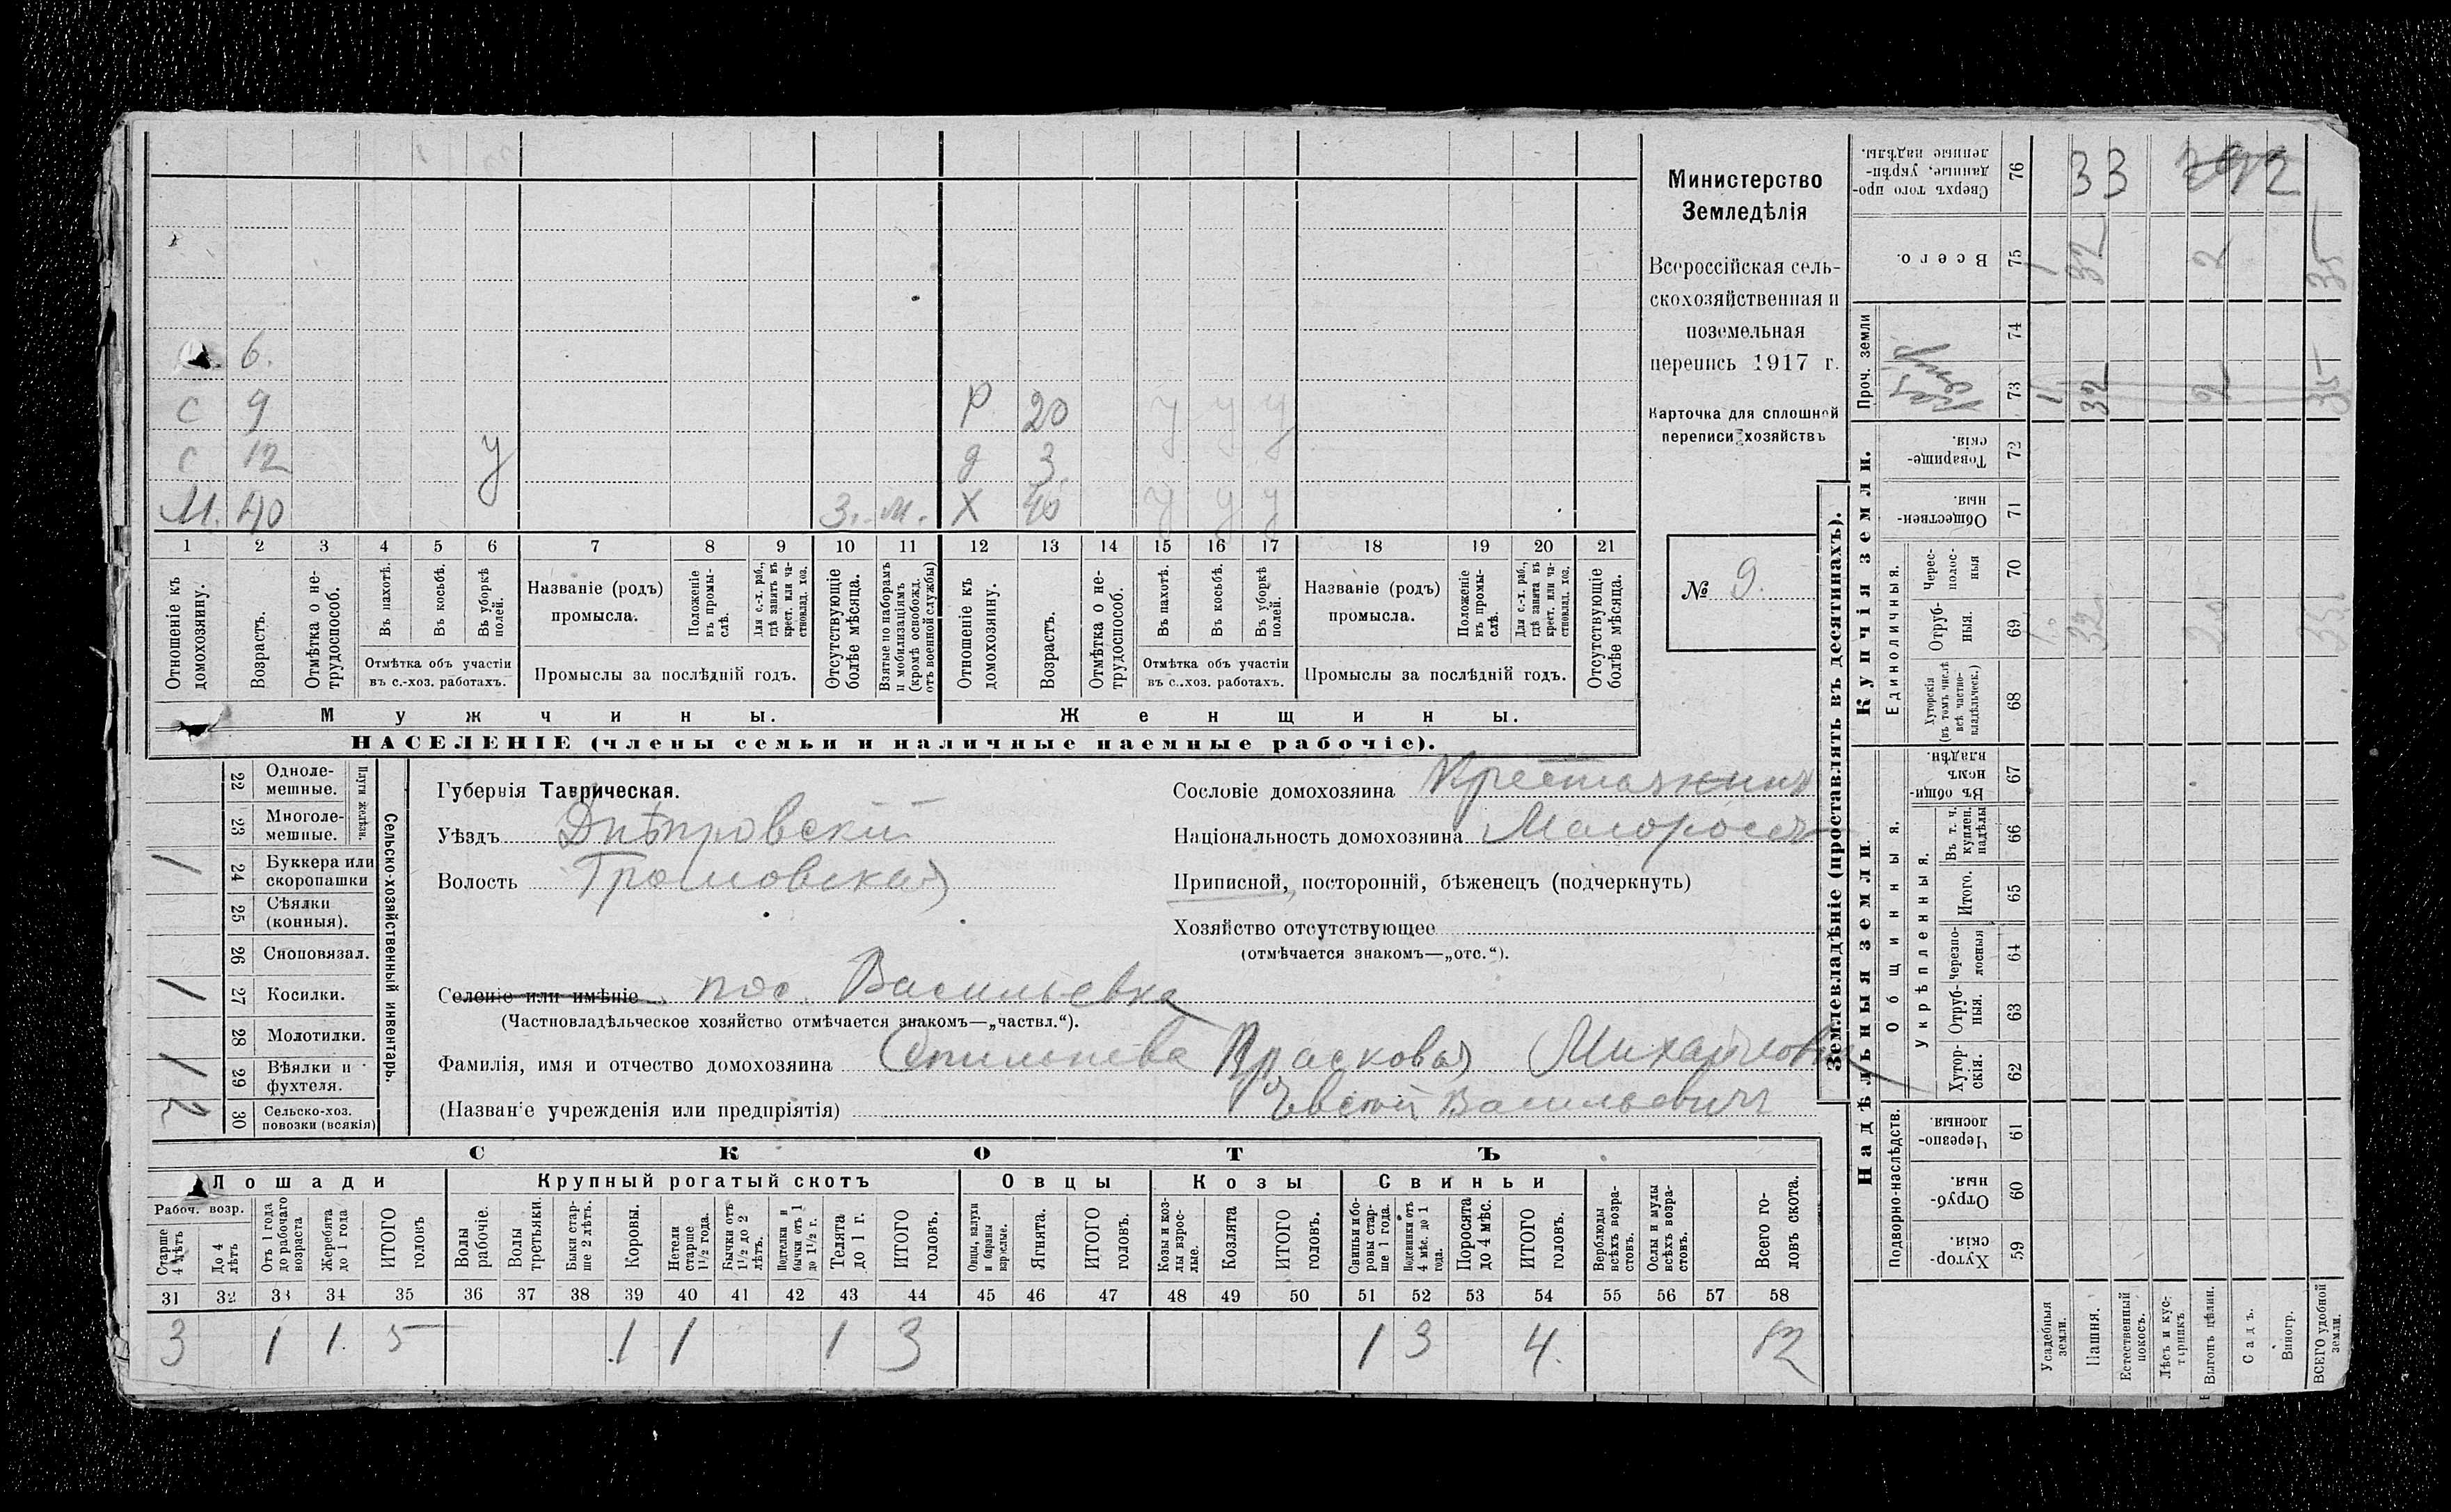 6.
С 9
Р 20 у у у
С 12 у
д 3
М. 40 З. м.
Х 40 у у у
1 2 3 4 5 6 7 8 9 10 11 12 13 14 15 16 17 18 19 20 21
Отношеніе къ домохозяину.
Возрастъ.
Отмѣтка о не-
трудоспособ.
Въ пахотѣ.
Въ косьбѣ.
Въ уборкѣ полей.
Отмѣтка объ участіи
въ с.-хоз. работахъ.
Названіе (родъ)
промысла.
Положеніе въ промы-
слѣ.
Для с.-х. раб., гдѣ занятъ въ крест. или ча-
стновлад. хоз.
Промыслы за послѣдній годъ.
Отсутствующіе болѣе мѣсяца.
Взятые по наборамъ и мобилизаціямъ (кромѣ освобожд. отъ военной службы)
Отношеніе къ домохозяину.
Возрастъ.
Отмѣтка о не-
трудоспособ.
Въ пахотѣ.
Въ косьбѣ.
Въ уборкѣ полей.
Отмѣтка объ участіи
въ с.-хоз. работахъ.
Названіе (родъ)
промысла.
Положеніе въ промы-
слѣ.
Для с.-х. раб., гдѣ занята въ крест. или ча-
стновлад. хоз.
Промыслы за послѣдній годъ.
Отсутствующіе болѣе мѣсяца.
Мужчины.
Женщины.
НАСЕЛЕНІЕ (члены семьи и наличные наемные рабочіе).
Министерство
Земледѣлія
Всероссійская сель-
скохозяйственная и
поземельная
перепись 1917 г.
Карточка для сплошной
переписи хозяйствъ
№ 9.
22 Одноле-
мешные.
Плуги желѣзн.
23 Многоле-
мешные.
1 24 Буккера или
скоропашки
25 Сѣялки
(конныя).
26 Сноповязал.
1 27 Косилки.
28 Молотилки.
1 29 Вѣялки и
фухтеля.
2 30 Сельско-хоз.
повозки (всякія)
Сельско-хозяйственный инвентарь.
Губернія Таврическая.
Уѣздъ Днѣпровскій
Волость Громовская
Селеніе или имѣніе пос. Васильевка
(Частновладѣльческое хозяйство отмѣчается знакомъ—„частвл.“).
Сословіе домохозяина Крестьянинъ
Національность домохозяина Малороссъ
Приписной, посторонній, бѣженецъ (подчеркнуть)
Хозяйство отсутствующее
(отмѣчается знакомъ—„отс.“).
Фамилія, имя и отчество домохозяина Прасковья Михайловна
(Названіе учрежденія или предпріятія) Васильевичъ
СКОТЪ
Лошади
Крупный рогатый скотъ
Овцы
Козы
Свиньи
Рабоч. возр.
Старше 4 лѣтъ
До 4 лѣтъ
Отъ 1 года до рабочаго возраста
Жеребята до 1 года
ИТОГО головъ
Волы рабочіе.
Волы третьяки.
Быки стар-
ше 2 лѣтъ.
Коровы.
Нетели старше 1½ года.
Бычки отъ 1½ до 2 лѣтъ.
Подтелки и бычки отъ 1 до 1½ г.
Телята до 1 г.
ИТОГО головъ.
Овцы, валухи и бараны взрослые.
Ягнята.
ИТОГО головъ.
Козы и коз-
лы взрос-
лые.
Козлята
ИТОГО головъ.
Свиньи и бо-
ровы стар-
ше 1 года.
Подсвинки отъ 4 мѣс. до 1 года.
Поросята до 4 мѣс.
ИТОГО головъ.
Верблюды всѣхъ возра-
стовъ.
Ослы и мулы всѣхъ возра-
стовъ.
Всего го-
ловъ скота.
31 32 33 34 35 36 37 38 39 40 41 42 43 44 45 46 47 48 49 50 51 52 53 54 55 56 57 58
3 1 1. 5 1 1 1 3 1 3 4. 12
Землевладѣніе (проставлять въ десятинахъ).
Надѣльныя земли
Купчія земли.
Проч. земли
Подворно-наслѣдств.
Общинныя.
Укрѣпленныя.
Единоличныя.
Сверхъ того про-
данные, укрѣп-
ленные надѣлы. 76 33
Всего. 75 1 32 2 35
74
73 1 32 2 35
Товарище-
скія. 72
Обществен-
ныя. 71
Черес-
полос-
ныя 70
Отруб-
ныя. 69 1. 32 2. 35
Хуторскія
(въ томъ числѣ
всѣ частно-
владѣльческ.) 68
Въ общи-
нномъ
владѣн. 67
Въ т. ч.
куплен.
надѣлы 66
Итого. 65
Черезпо-
лосныя 64
Отруб-
ныя. 63
Хутор-
скія. 62
Черезпо-
лосныя. 61
Отруб-
ныя. 60
Хутор-
скія. 59
Усадебныя земли.
Пашня.
Естественный покосъ.
Лѣсъ и кус-
тарникъ.
Выгонъ цѣлин.
Садъ.
Виногр.
ВСЕГО удобной земли.